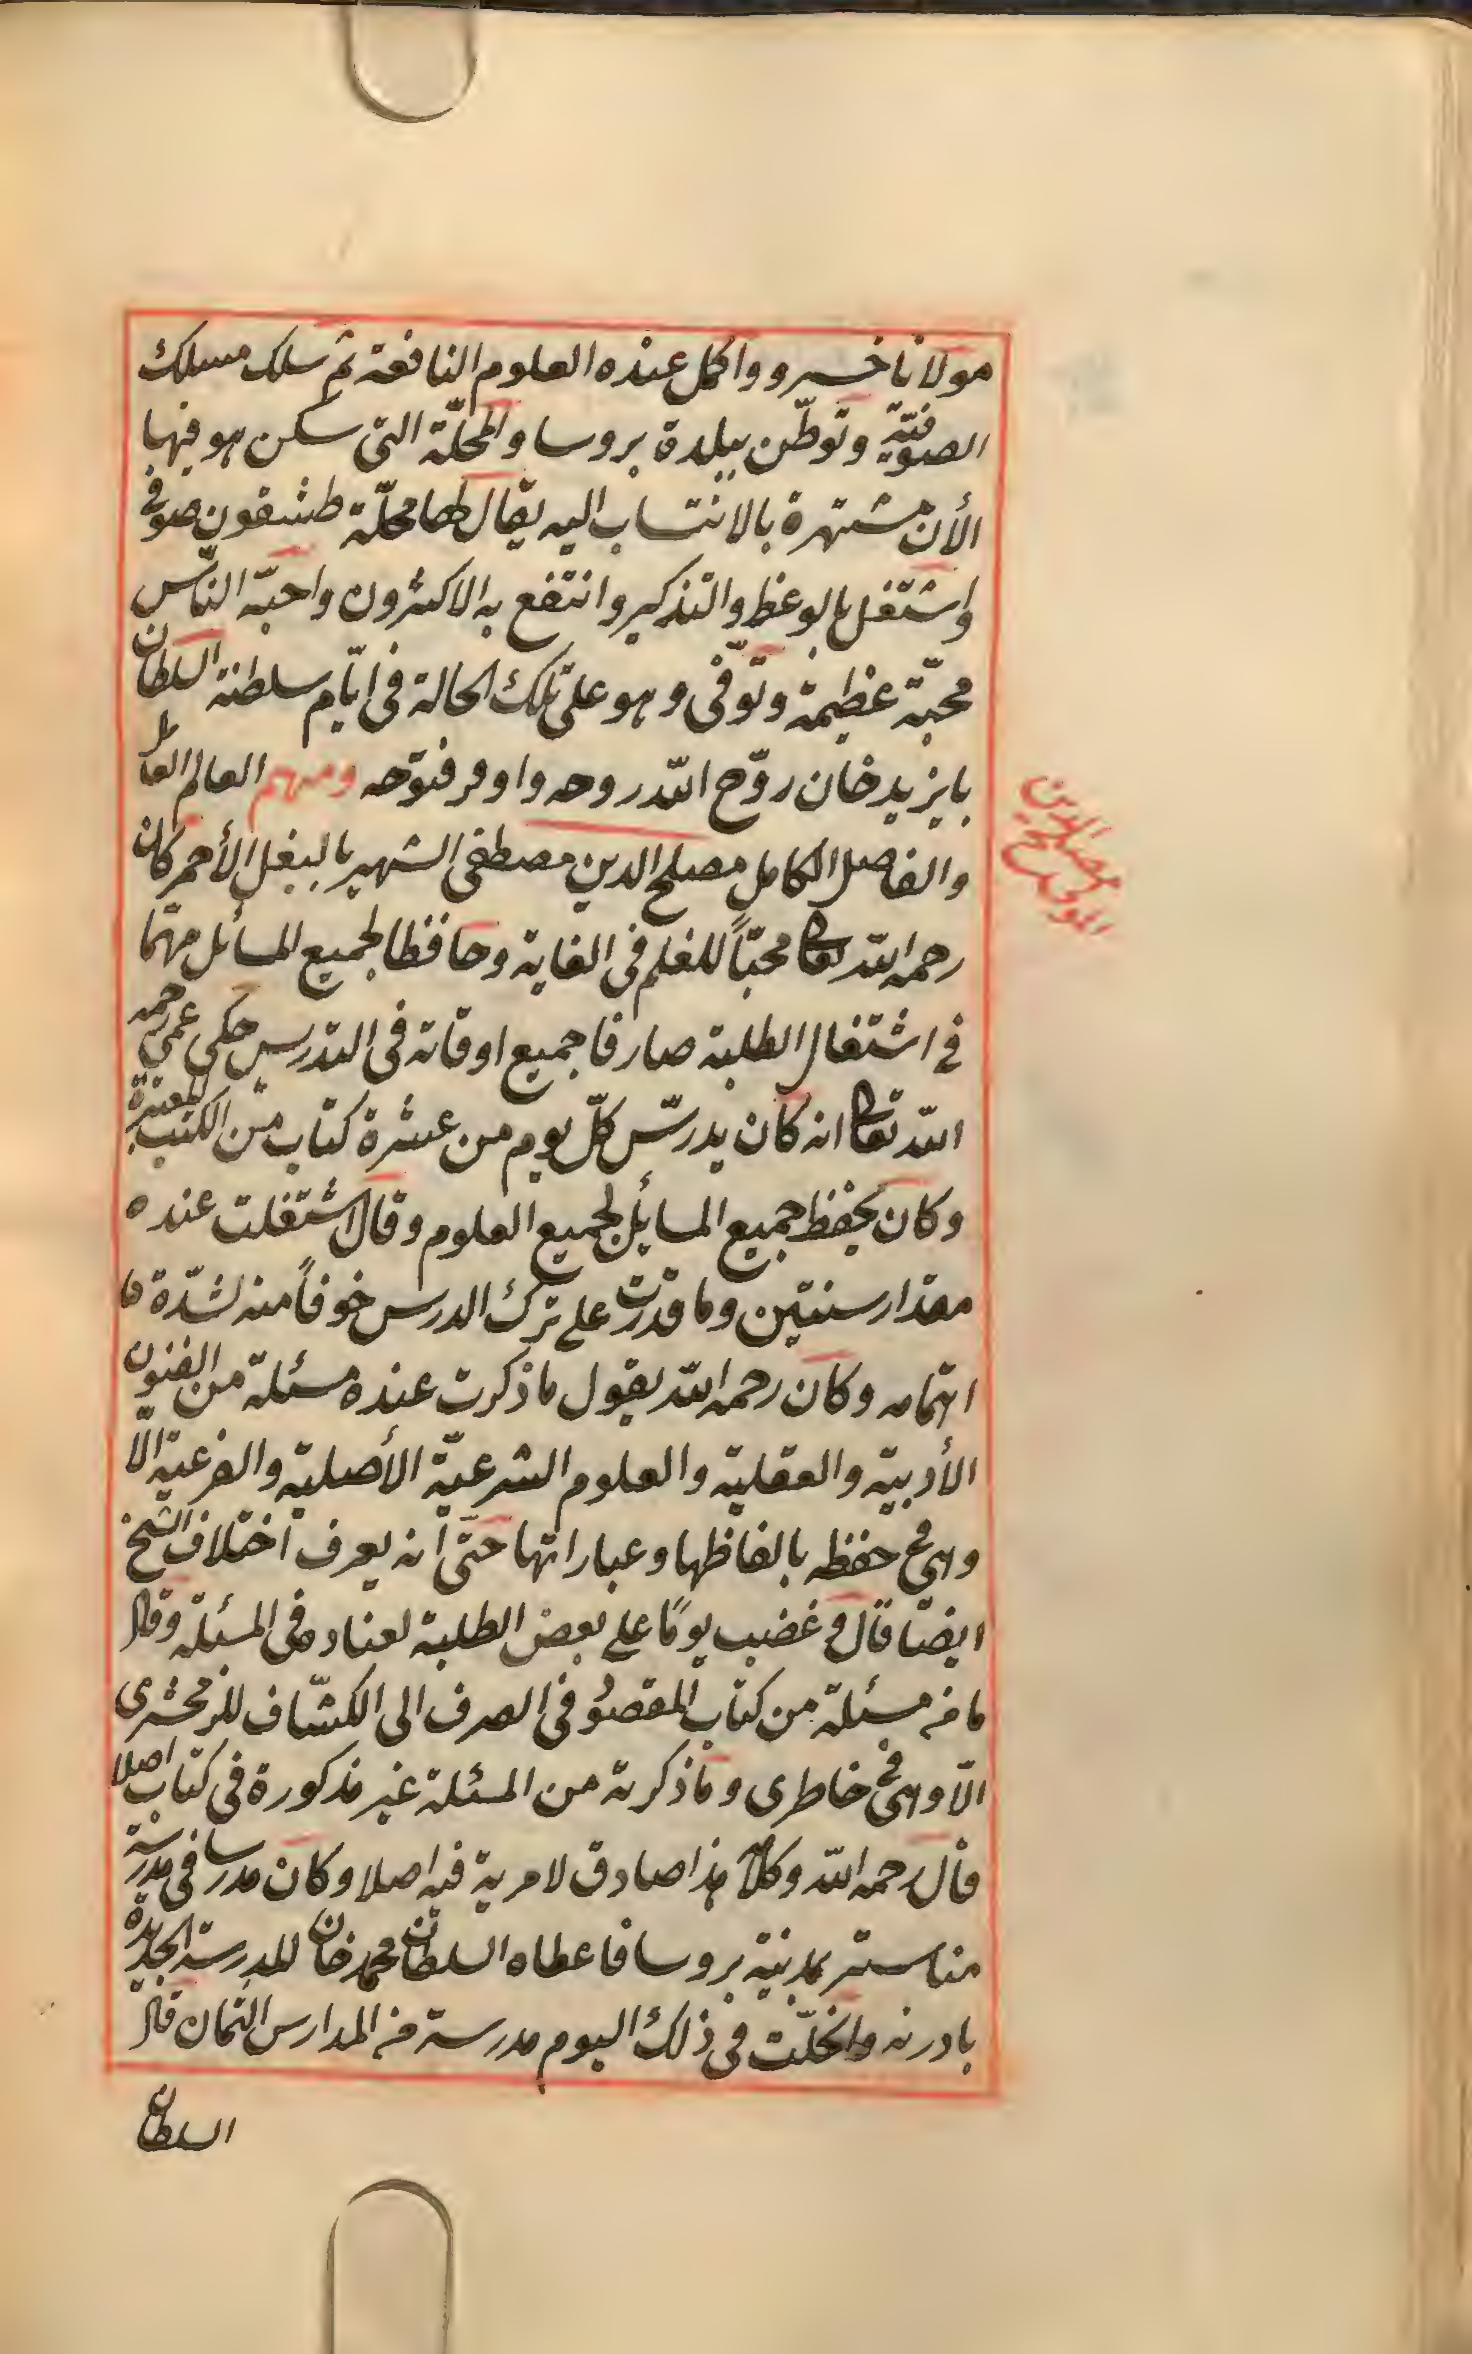 مولانا خسرو واكمل عنده العلوم النافعة ثم سلك مسلك
الصوفيّة وتوطّن ببلدة بروسا والمحلّة التى سكن هو فيها
الأن مشتهرة بالانتساب اليه يقال لها محلّة طشقون صوفى
واشتغل بالوعظ والتذكير وانتفع به الاكثرون واحبّه النّاس
محبّة عظيمة وتوفّى وهو على تلك الحالة فى ايّام سلطنة السلطان
بايزيد خان روّح اللّه روحه واوفر فتوحه ومنهم العالم العامل
والفاضل الكامل مصلح الدين مصطفى الشهير بالبغل الأحمر كان
رحمه اللّه تعالى محبّاً للعلم فى الغاية وحافظا لجميع المسائل مهتما
فى اشتغال الطلبة صارفا جميع اوقاته فى التدريس حكى عمى رحمه
اللّه تعالى انه كان يدرّس كلّ يوم من عشرة كتاب من الكتب المعتبرة
وكان يحفظ جميع المسائل لجميع العلوم وقال اشتغلت عنده
مقدار سنتين وما قدرت على ترك الدرس خوفاً منه لشدّة ما
اهتمامه وكان رحمه اللّه يقول ما ذكرت عنده مسئلة من الفنون
الأدبية والعقلية والعلوم الشرعيّة الأصلية والفرعية الّا
وهى فى حفظه بالفاظها وعباراتها حتى انه يعرف اختلاف النسخ
ايضا قال وغضب يومًا على بعض الطلبة لعناده فى المسئلة وقال
ما من مسئلة من كتاب المقصود فى الصرف الى الكشّاف للزمخشرى
الّا وهى فى خاطرى وما ذكرته من المسئلة غير مذكورة فى كتاب اصلا
قال رحمه اللّه وكلامه هذا صادق لا مرية فيه اصلا وكان مدرسا فى مدرسة
مناستر بمدينة بروسا فاعطاه السلطان محمد خان المدرسة الجديدة
بادرنه وانحلّت فى ذلك اليوم مدرسة من المدارس الثمان قال
السلطان
المولى مصلح الدين